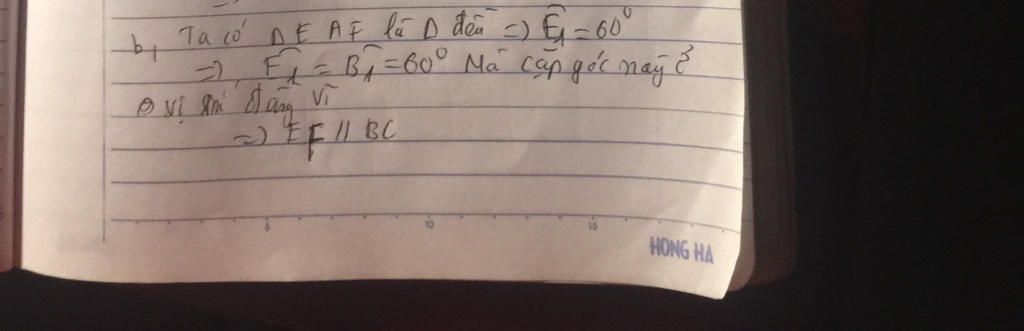 b, Ta có Δ EAF là Δ đều => Ê₁ = 60⁰
=> Ê₁ = B̂₁ = 60⁰ Mà cặp góc này ở
vị trí đồng vị
=> EF // BC
5 10 15
HONG HA